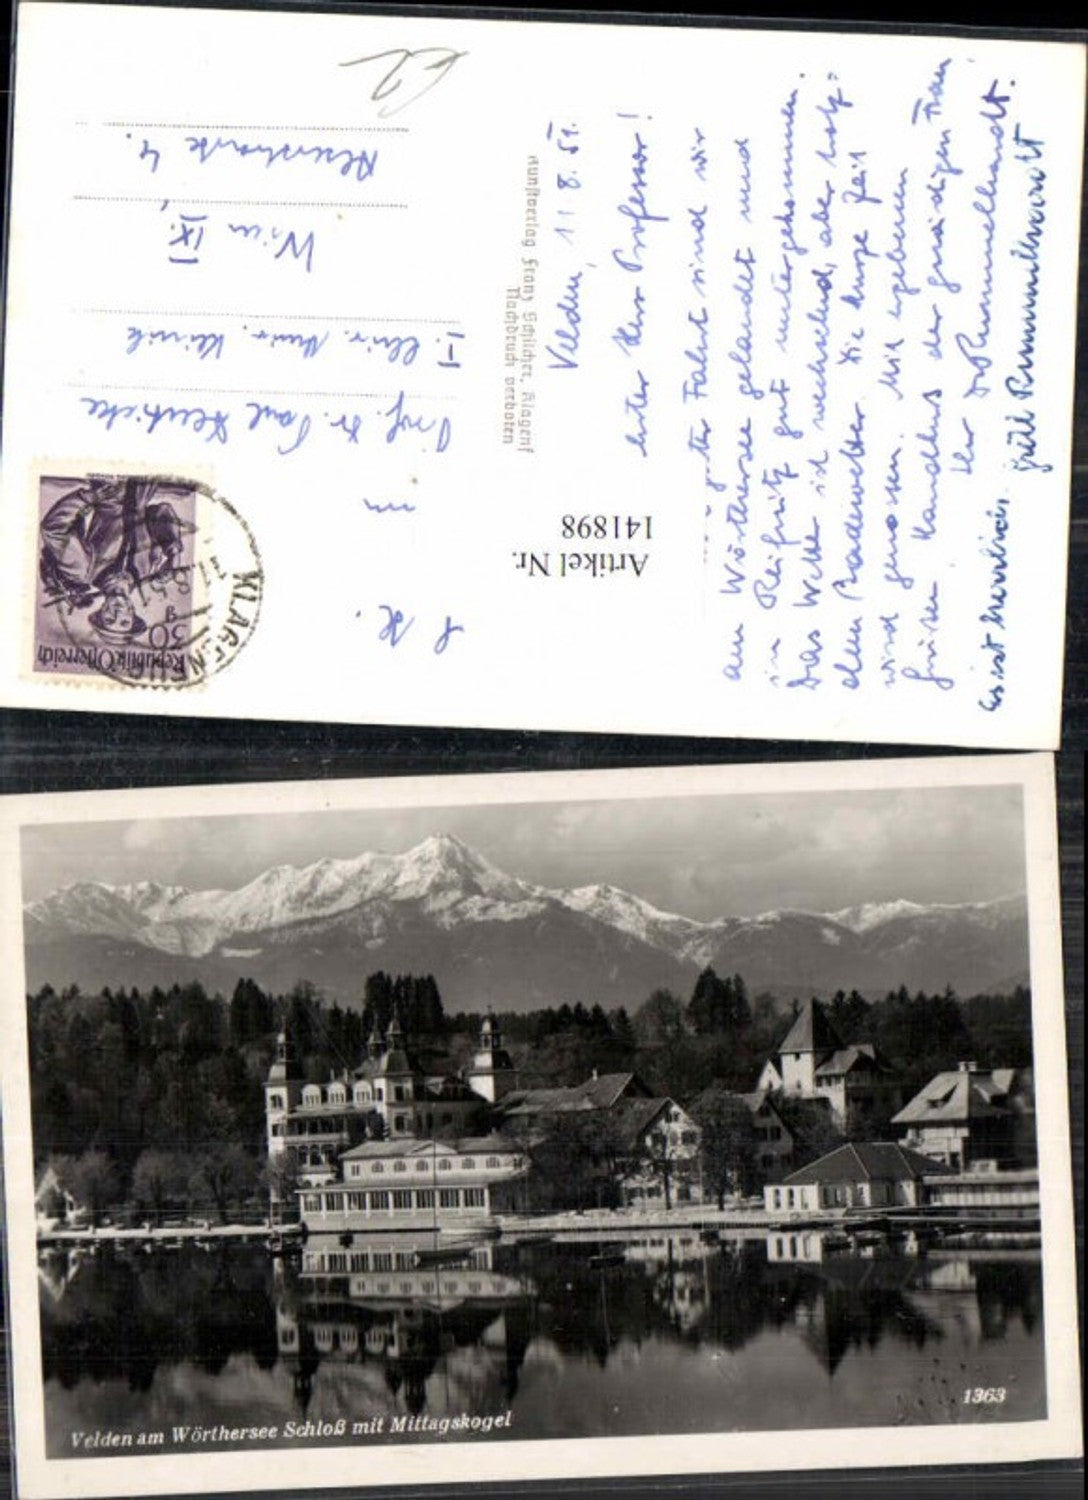 Velden, 11.8.51.
Herr Professor!
guter Fahrt sind wir
am Wörthersee gelandet und
in Reifnitz gut untergekommen.
Das Wetter ist wechselnd, aber trotz=
dem Badewetter. Die kurze Zeit
wird genossen. Mit ergebenen
Grüßen, Handkuß der gnädigen Frau,
Ihr
Es ist herrlich.
Kunstverlag Franz Schilcher, Klagenf
Nachdruck verboten
Artikel Nr.
141898
Prof. Dr. Paul
I. Chir. Univ. Klinik
Wien IX.
Alserstraße 4.
Republik Österreich
30 g
KLAGENFURT
11.8.51
Velden am Wörthersee Schloß mit Mittagskogel
1363